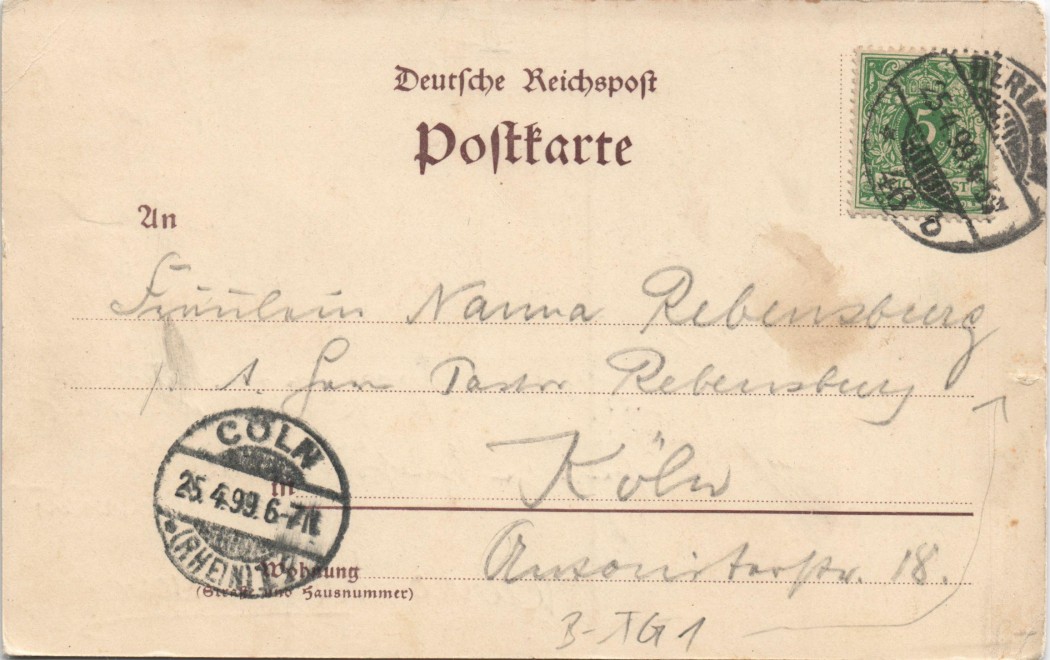 Deutsche Reichspost
Postkarte
5
REICHSPOST
BERLIN
25.4.99
An
Fräulein Nanna Rebensburg
A. Herrn Pastor Rebensburg
CÖLN
25.4.99.6-7N
(RHEIN)
in Köln
Wohnung
(Straße und Hausnummer)
Antoniterstr. 18.
B-TG1